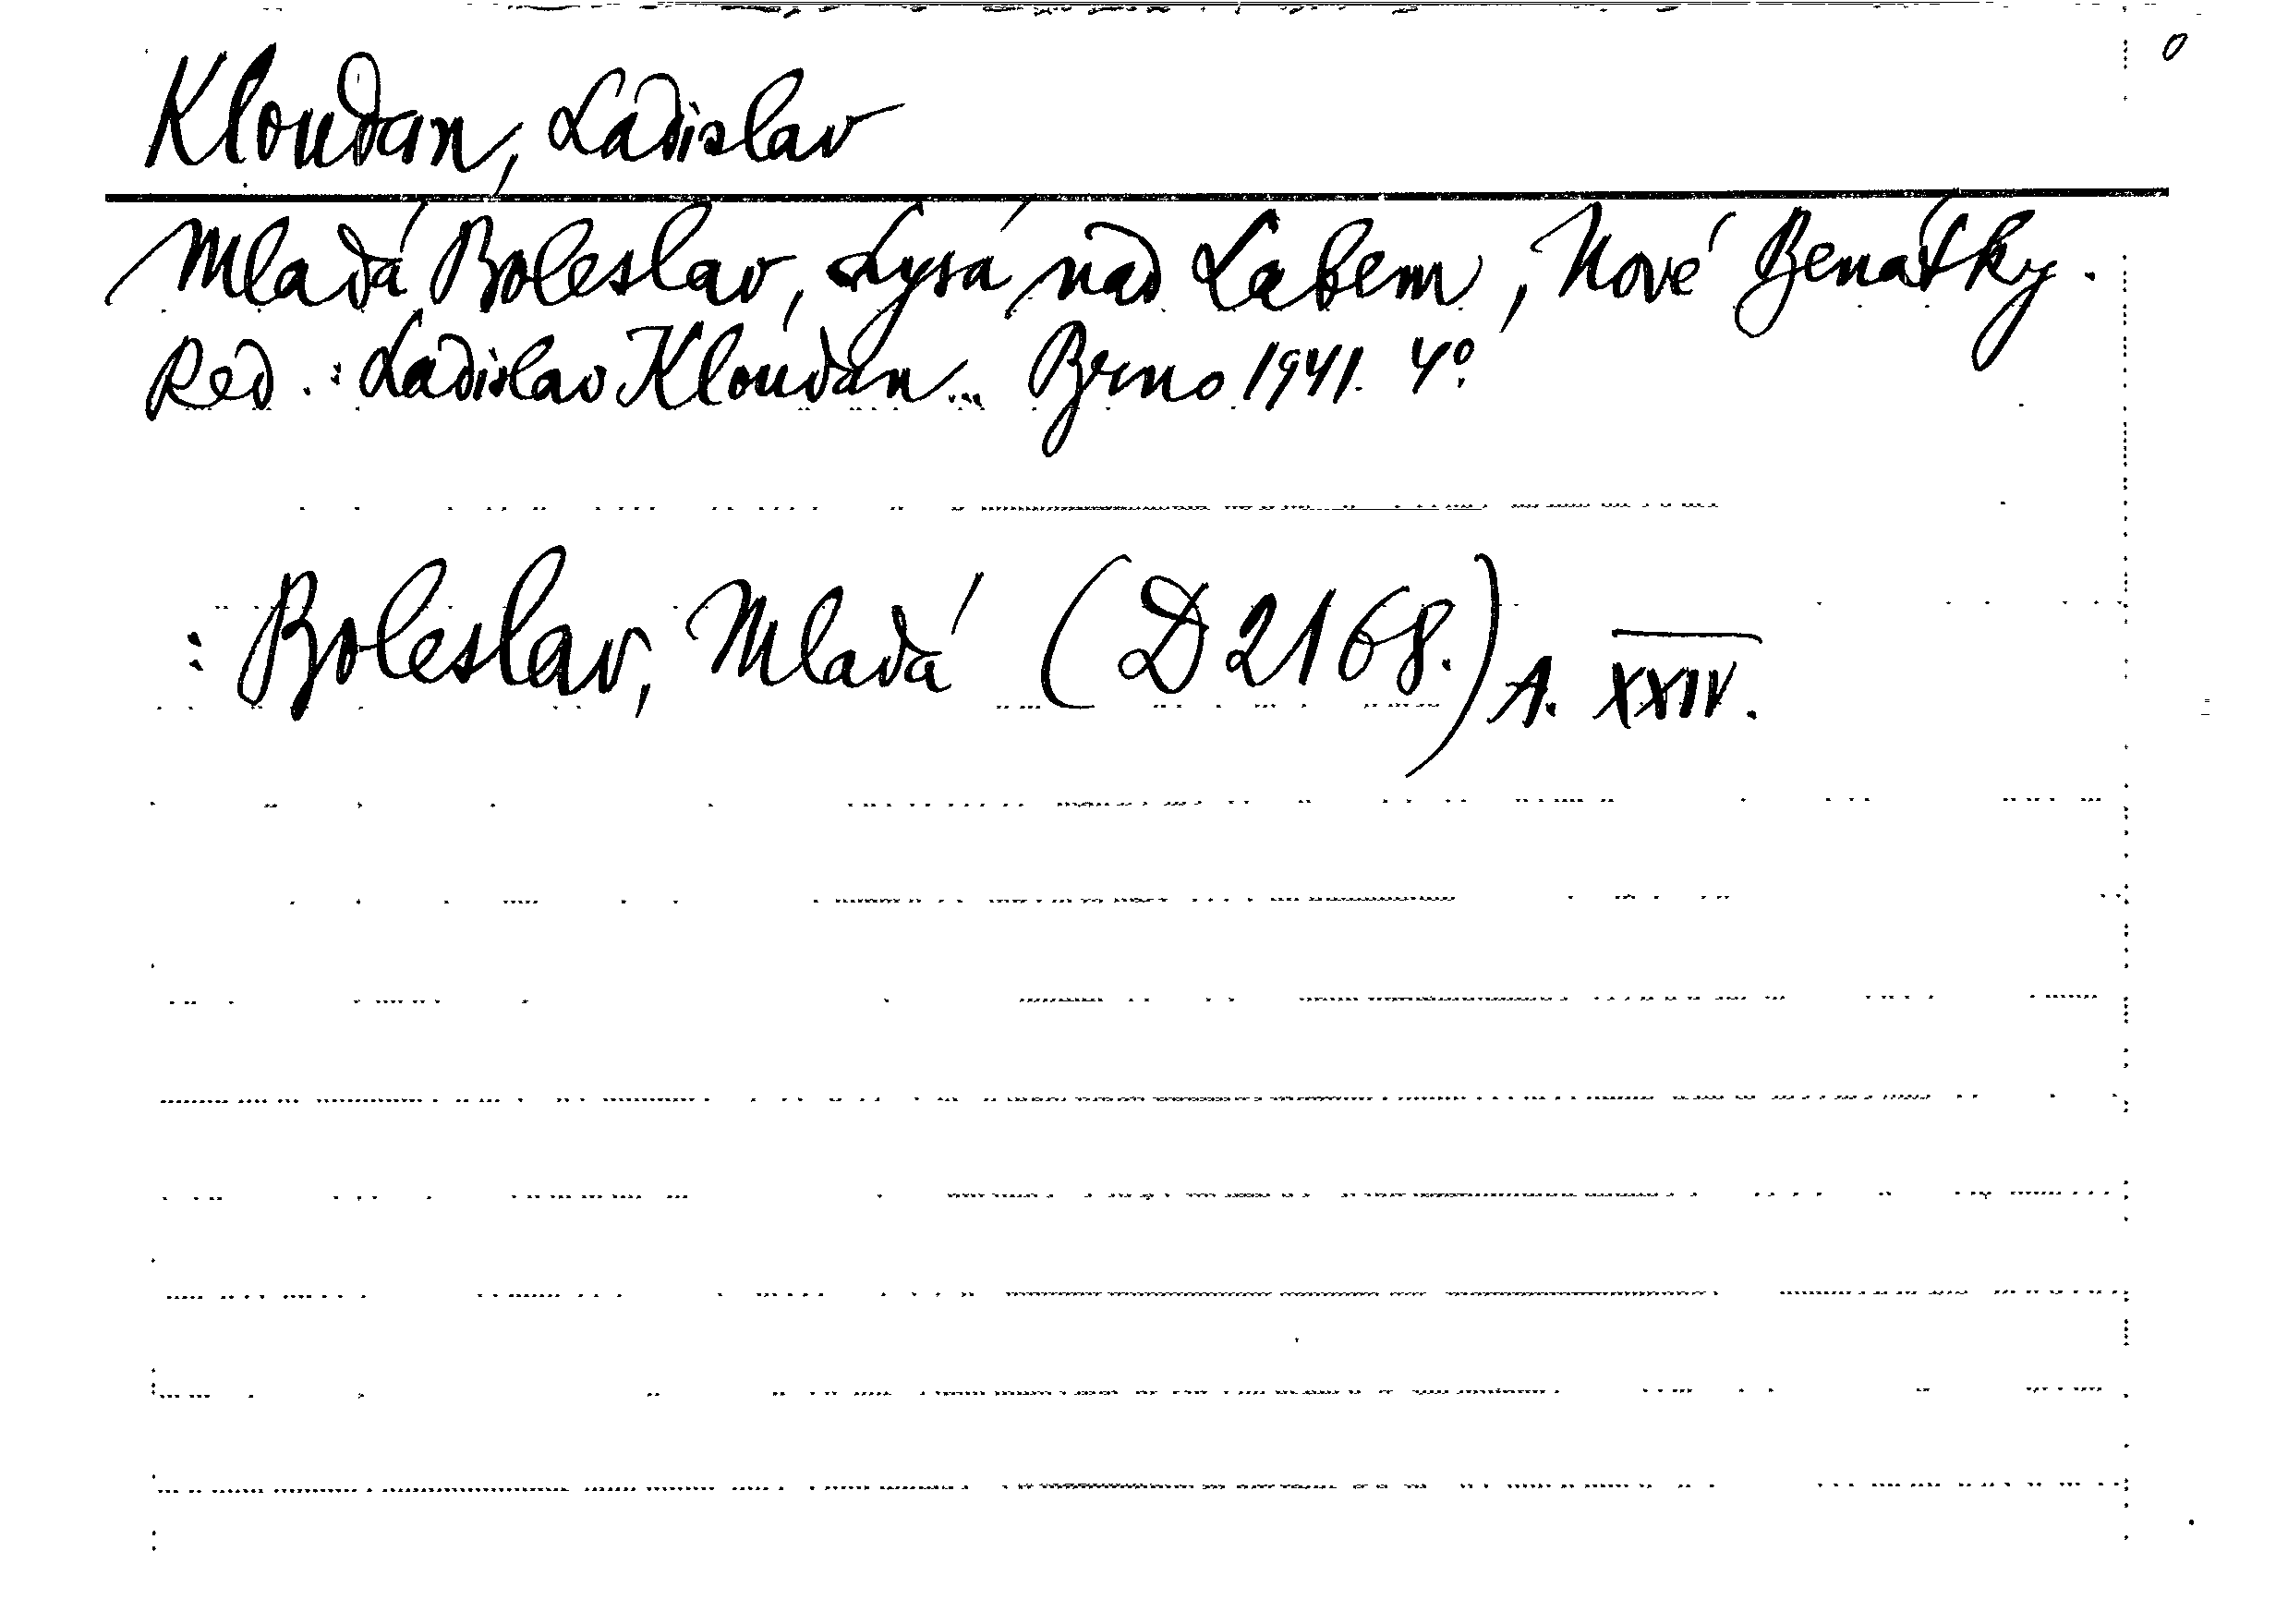 0
Kloudan, Ladislav
Mladá Boleslav, Lysá nad Labem, Nové Benátky.
Red.: Ladislav Kloudan... Brno 1941. 4°.
: Boleslav, Mladá (D 2168.) A. XXIV.